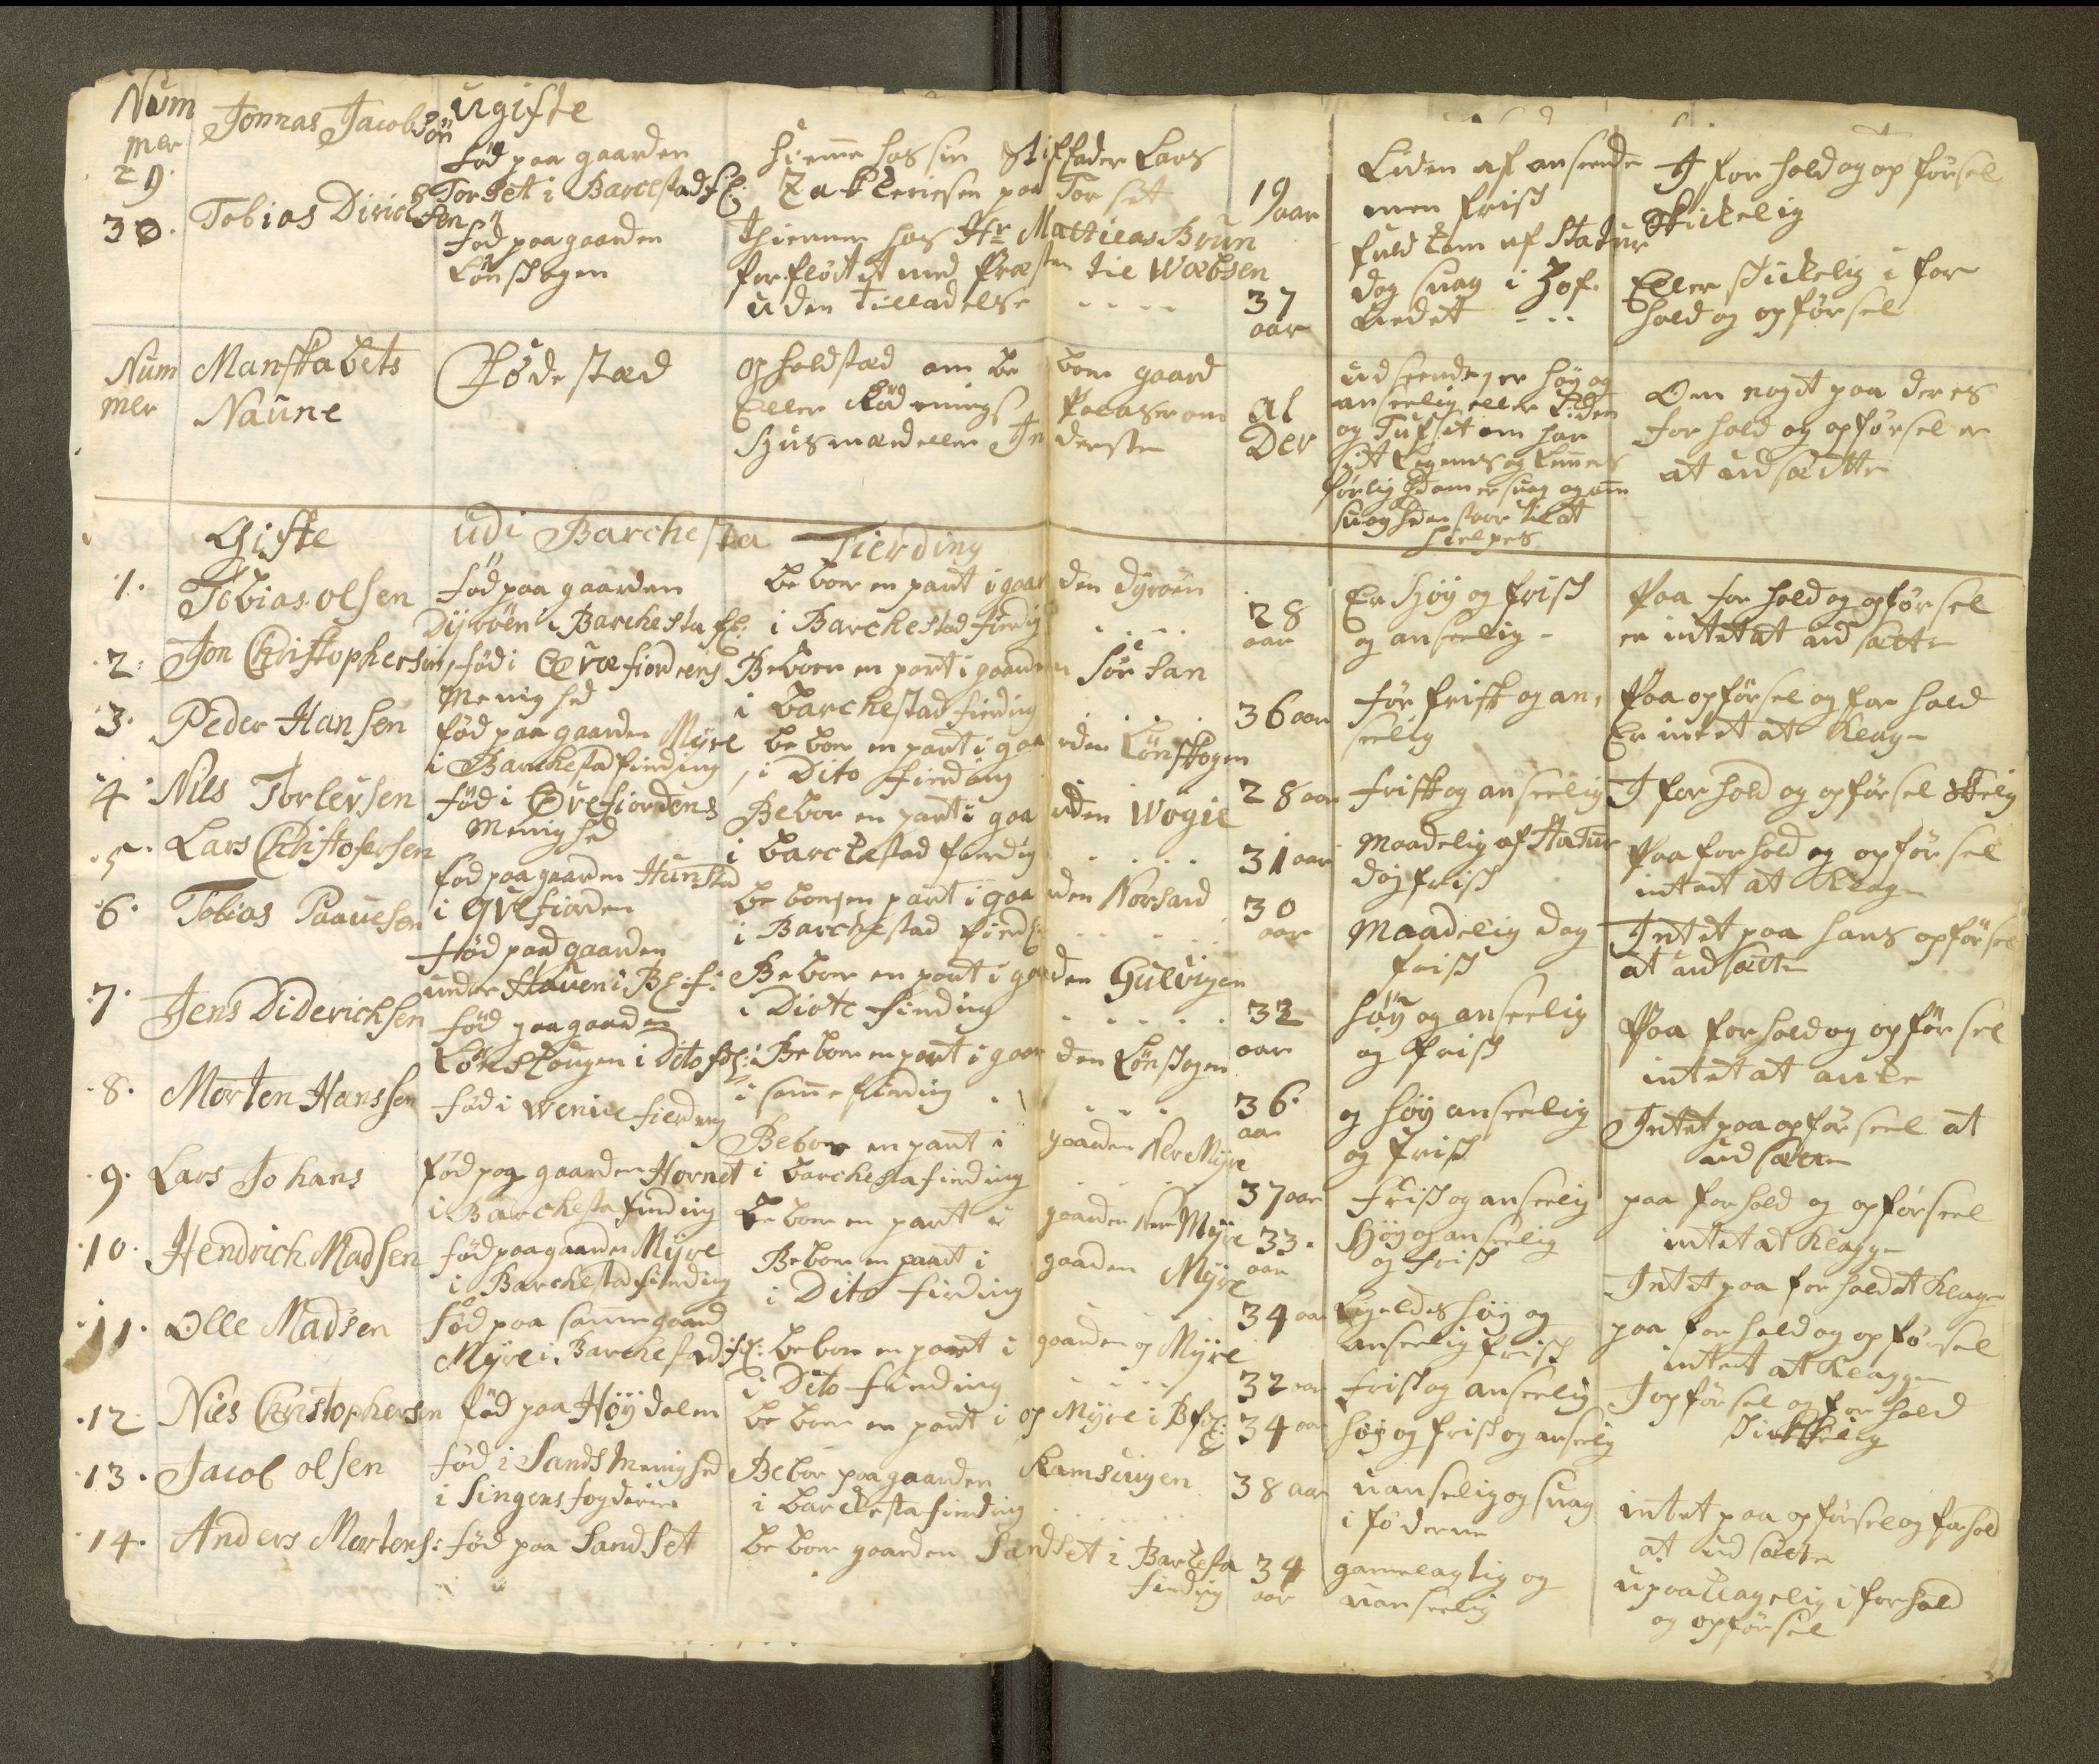 Num
mer
29.
Jonnas Jacobsøn
ugifte
fød paa gaarden
Torset i Barcestad f:
hiemme hos sin Stiffader Lars
Zakkeriesen paa Torset
19 aar
Liden af anseende
men frisk
I forhold og opførsel
Skikelig
30.
Tobias Dirichsen
fød paa gaarden
Lønskogen
thiener hos Hr Mattias Brun
for fløttet med Præsten til
uden Tilladelse - - - -
37
aar
fuldkom af Statur
dog suag i Hof-
uedet - - -
Eller skikelig i for
hold og opførsel
Num
mer
Manskabets
Naune
Fødestæd
opholdstæd om be boer gaard
Eller Rødnings Pladser om
Husmænd eller Inderste
Al
Der
udseende, er høy og
anseelig eller Liden
og om har
sit Legems og Lemers
førlig hed om er suag og om
suagheden staar til at
hielpes
Om noget paa deres
forhold og opførsel er
at udsætte
Gifte
udi Barchesta Fierding
1.
Tobias olsen
fød paa gaarden
Dyrøen i Barchesta f:
be boer en part i gaarden dyrøen
i Barchestad fierdig - - - -
28
aar
Er Høy og frisk
og anseelig -
Paa forhold og opførsel
er intet at udsætte
2.
Jon Christophersen
fød i Qvæfiordens
Menighed
Beboer en part i gaarden Sørsan
i Barchestad fierding - - - -
36 aar
før frisk og an-
seelig
Paa opførsel og forhold
Er intet at Klage
3.
Peder Hansen
fød paa gaarden Myre
i Barchestad fierding
be boer en part i gaarden Lønskogen
i Dito fierding
28 aar
frisk og anseelig
I forhold og opførsel
4.
Nils Torlevsen
fød i Qvefiordens
Menighed
Beboer en part i gaarden Wogie
i Barchestad fierdig - - - -
31 aar
Maadelig af Statur
dog frisk
Paa forhold og opførsel
intet at Klage
5.
Lars Christofersen
fød paa gaarden Hunstad
i Qvefiorden
be boer en part i gaarden Norsand
i Barchestad fierd: - - - -
30
aar
Maadelig dog
frisk
Intet paa hans opførsel
at udsætte
6.
Tobias Paavesen
fød paa gaarden
under Stauen i B: f:
Beboer en part i gaarden Gulvigen
i Diote fierding - - - - -
32
aar
høy og anseelig
og frisk
Paa forhold og opførsel
intet at anke
7.
Jens Diderichsen
fød paa gaarden
Lønskougen i Dito f:
Beboer en part i gaarden Lønskogen
i samme fierdig - - - -
36.
aar
og høy anseelig
og frisk
Intet paa opførseel at
udsætte
8.
Morten Hanssen
fød i fierding
Beboer en part i gaarden Ner Myre
i Barchesta fierding - - - -
37 aar
frisk og anseelig
paa forhold og opførseel
intet at Klagge
9.
Lars Johans
fød paa gaarden Hornet
i Barchesta fierding
be boer en part i gaarden Ner Myre
33.
aar
Høy og anseelig
og frisk
Intet paa forhold at Klage
10.
Hendrich Madsen
fød paa gaarden Myre
i Barchestad fierding
Beboer en paart i gaarden Myre
i Dito fierding - - - -
34 aar
Ligeledes høy og
anseelig frisk
paa forhold og opførsel
intet at Klagge
11.
Olle Madsen
fød paa samme gaard
Myre i Barchestad f:
beboer en part i gaarden og Myre
i Dito fierding - - - -
32 aar
frisk og anseelig
I opførsel og forhold
skikkelig
12.
Nils Christophersen
fød paa Høydalen
be boer en part i og Myre i B f:
34 aar
høy og frisk og anseelig
13.
Jacob olsen
fød i Sands Menighed
i Singens fogderie
Beboer paa gaarden Ramsuigen
i Barchesta fierding - - - -
38 aar
uanselig og suag
i føderne
intet paa opførsel og forhold
at udsætte
14.
Anders Mortens:
fød paa Sandset
be boer gaarden Sandset i Barchesta
fierding
34
aar
gammelagtig og
uanseelig
upaaklagelig i forhold
og opførsel